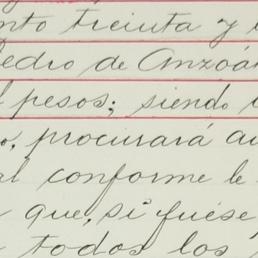 nto treinta y
Pedro de Anzoá
l pesos; siendo
o, procurará au
al conforme le
que, si fuése
todos los